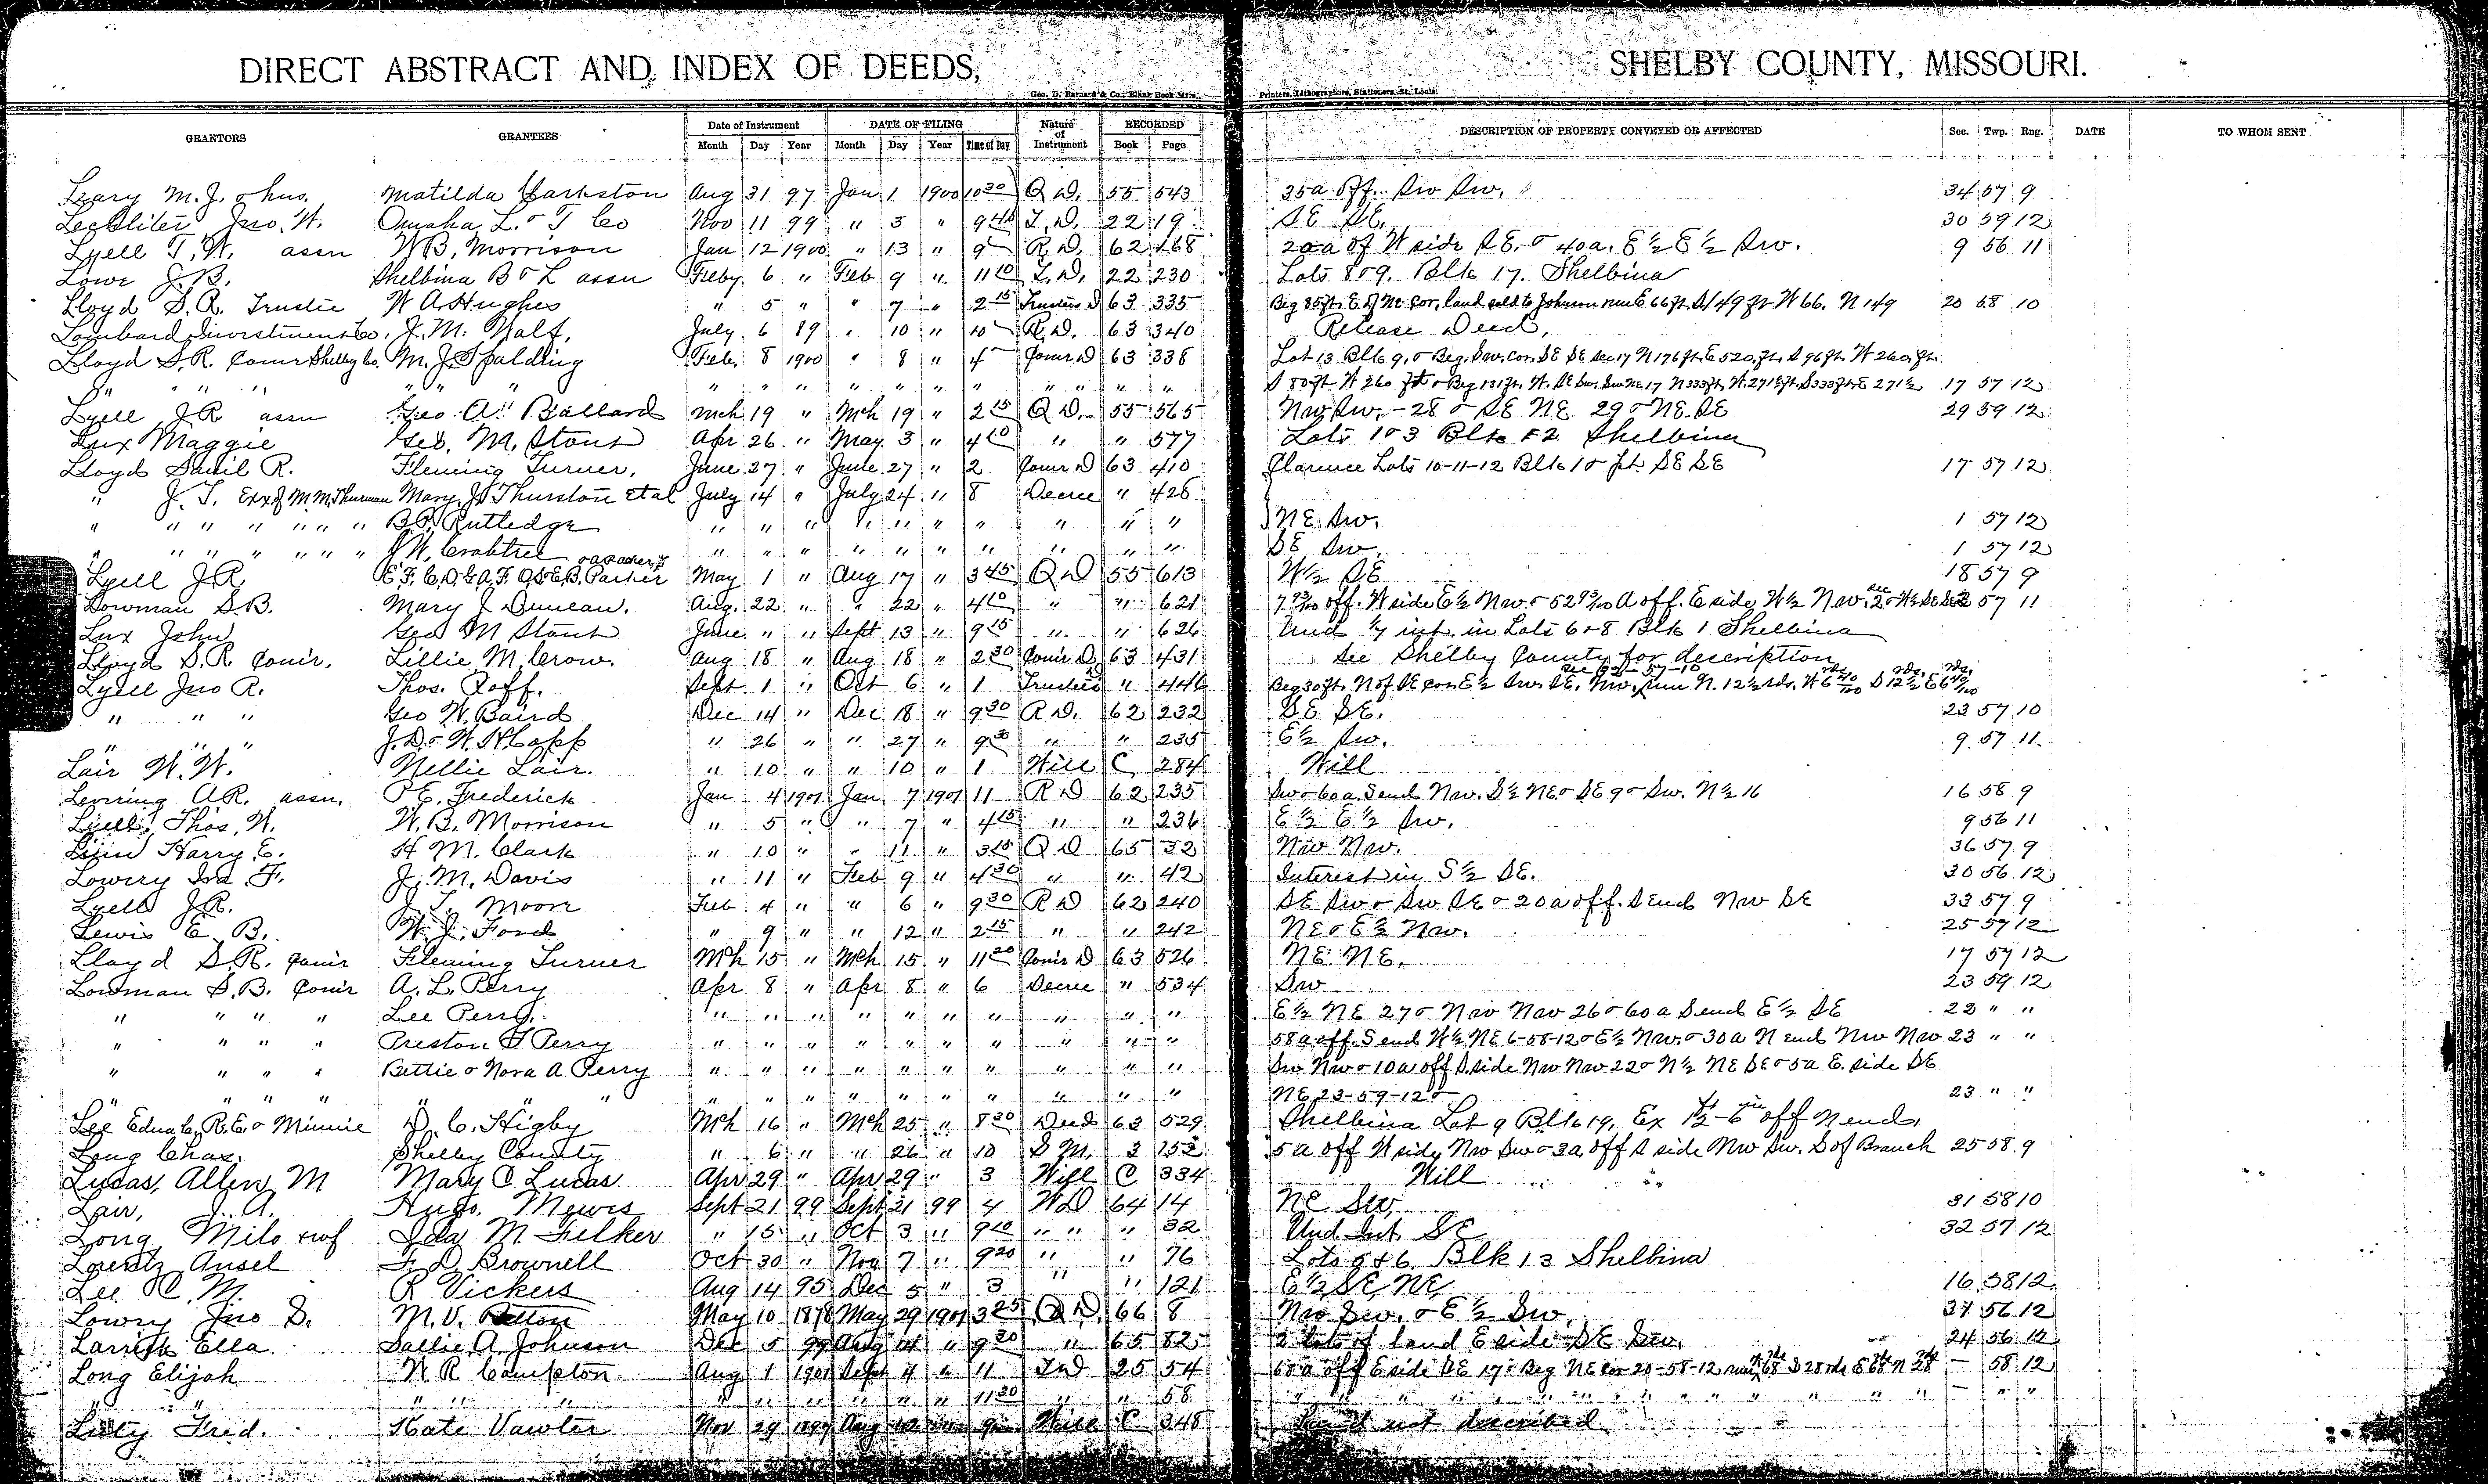 DIRECT ABSTRACT AND INDEX OF DEEDS, SHELBY COUNTY, MISSOURI.
Geo. D. Barnard & Co., Blank Book Mfrs. Printers, Lithographers, Stationers, St. Louis.
GRANTORS GRANTEES Date of Instrument DATE OF FILING Nature of Instrument RECORDED DESCRIPTION OF PROPERTY CONVEYED OR AFFECTED Sec. Twp. Rng. DATE TO WHOM SENT
Month Day Year Month Day Year Time of Day Book Page
Leary M. J. & hus. Matilda Aug 31 97 Jan 1 1900 10 30 Q D. 55 543 35a off. Sw Sw. 34 57 9
Lechliter Jno. W. Omaha L. & T Co Nov 11 99 " 3 " 9 40 T. D. 22 19 SE SE. 30 59 12
Lyell T. W. assn W. B. Morrison Jan 12 1900 " 13 " 9 R. D. 62 168 20a of W side SE. & 40a. E½ E½ Sw. 9 56 11
Lowe J. B. Shelbina B & L assn Feby. 6 " Feb 9 " 11 10 T. D. 22 230 Lots 8 & 9. Blk 17. Shelbina
Lloyd S. R. Trustee W. A. Hughes " 5 " " 7 " 2 15 Trustees D 63 335 Beg 85ft. E. of Ne Cor. land sold to Johnson run E 66 ft. S 149 ft W 66. N 149 20 58 10
Lombard Investment Co. J. M. July 6 89 " 10 " 10 R. D. 63 340 Release Deed.
Lloyd S. R. Comr Shelby Co. M. J. Spalding Feb. 8 1900 " 8 " 4 Comr D 63 338 Lot 13 Blk 9, & Beg. Sw. Cor. SE SE Sec 17 N 176 ft. E 520 ft. S 96 ft. W 260 ft.
" " " " " " " " " " " " " " " " " S 80 ft W 260 ft & Beg 131 ft. W. SE Sw. Sw Ne 17 N 333 ft. W. 271½ ft. S 333 ft. E 271½ 17 57 12
Lyell J. R. assn Geo. A. Ballard Mch 19 " Mch 19 " 2 15 Q D. 55 565 Nw Sw. - 28 & SE NE 29 & NE. SE 29 59 12
Lux Maggie Geo. M. Stout Apr 26 " May 3 " 4 10 " " 577 Lots 1 & 3 Blk 12 Shelbina
Lloyd Samil R. Fleming Turner, June 27 " June 27 " 2 Comr D 63 410 Clarence Lots 10-11-12 Blk 1 & pt. SE SE 17 57 12
" J. T. Exx of M. M. Thurman Mary J. Thurston et al July 14 " July 24 " 8 Decree " 428
" " " " " " " B. P. Rutledge " " " " " " " " " " NE Sw. 1 57 12
" " " " " " " J. W. Crabtree " " " " " " " " " " SE Sw. 1 57 12
Lyell J. R. E. F. C. D. G. A. F. O. S. E. B. Parker May 1 " Aug 17 " 3 45 Q D 55 613 W½ SE 18 57 9
Bowman S. B. Mary J. Duncan. Aug. 22 " " 22 " 4 10 " " 621 off. W side E½ Nw. & 52 A off. E side W½ Nw. 57 11
Lux John Geo M Stout June " " Sept 13 " 9 15 " " 626 Und 1/7 int. in Lots 6 & 8 Blk 1 Shelbina
Lloyd S. R. Comr. Lillie M. Crow. Aug 18 " Aug 18 " 2 30 Comr D 63 431 See Shelby County for description
Lyell Jno R. Thos. Roff. Sept 1 " Oct 6 " 1 Trustees " 446 Beg 30 ft. N of SE cor. E½ Sw. SE. Nw. run N. 12½ rds. W 6 40/100 S 12½ E 6 40/100
" " " Geo W. Baird Dec 14 " Dec 18 " 9 30 R D. 62 232 SE SE. 23 57 10
" " " J. D. & W. H. Capp " 26 " " 27 " 9 30 " " 235 E½ Sw. 9 57 11
Lair W. W. Nellie Lair. " 10 " " 10 " 1 Will C 284 Will
Levering A. R. assn. P. E. Frederick Jan 4 1901 Jan 7 1901 11 R D 62 235 Sw & 60a. S end Nw. S½ NE & SE 9 & Sw. N½ 16 16 58 9
Lyell, Thos. W. W. B. Morrison " 5 " " 7 " 4 15 " " 236 E½ E½ Sw. 9 56 11
Harry E. H. M. Clark " 10 " " 11 " 3 15 Q D 65 32 Nw Nw. 36 57 9
Lowry Ira F. J. M. Davis " 11 " Feb 9 " 4 30 " " 42 Interest in S½ SE. 30 56 12
Lyell J. R. J. T. Moore Feb 4 " " 6 " 9 30 R D 62 240 SE Sw & Sw SE & 20a off. S end Nw SE 33 57 9
Lewis E. B. W. J. Ford " 9 " " 12 " 2 15 " " 242 NE & E½ Nw. 25 57 12
Lloyd S. R. Comr Fleming Turner Mch 15 " Mch 15 " 11 20 Comr D 63 526 NE NE. 17 57 12
Lowman S. B. Comr A. L. Perry Apr 8 " Apr 8 " 6 Decree " 534 Sw 23 59 12
" " " " Lee Perry. " " " " " " " " " " E½ NE 27 & Nw Nw 26 & 60a S end E½ SE 23 " "
" " " " Preston F Perry " " " " " " " " " " 58a off. S end W½ NE 6-58-12 & E½ Nw. & 30a N end Nw Nw 23 " "
" " " " Bettie & Nora A. Perry " " " " " " " " " " Sw Nw & 10a off S side Nw Nw 22 & N½ NE SE & 5a E. side SE
" " " " " " " " " " " " " " NE 23-59-12 & 23 " "
Lee Edna C., R. E. & Minnie D. C. Higby Mch 16 " Mch 25 " 8 30 Deed 63 529 Shelbina Lot 9 Blk 19, Ex off N end.
Long Chas. Shelby County " 6 " " 26 " 10 S M. 3 152 5 a off W side Nw Sw & 3a off S side Nw Sw. S of Branch 25 58 9
Lucas, Allen M Mary C Lucas Apr 29 " Apr 29 " 3 Will C 334 Will
Lair, J. A. Hugo. Mewis Sept 21 99 Sept 21 99 4 WD 64 14 NE SW. 31 58 10
Long Milo & wf Ida M Felker " 15 " Oct 3 " 9 20 " " 32 Und Int. SE 32 57 12
Lorentz Ansel F. D Brownell Oct 30 " Nov 7 " 9 20 " " 76 Lots 5 & 6 Blk 13 Shelbina
Lee C. M. R Vickers Aug 14 95 Dec 5 " 3 " " 121 E½ SE NE 16 58 12
Lowry Jno S. M. V. May 10 1878 May 29 1901 3 25 Q D. 66 8 Nw Sw. & E½ Sw. 56 12
Larrick Ella Sallie A. Johnson Dec 5 99 Aug 14 " 9 20 " 65 82 2 lots of land E side SE Sw. 24 56 12
Long Elijah W. R. Compton Aug 1 1901 Sept 4 " 11 T D 25 54 68 a off E side SE 17 & Beg NE Cor 20-58-12 - 58 12
" " " " " " " " " 11 20 " " 58 " " " " " " - " "
Fred. Kate Vawter Nov 29 1897 Aug Will C 348 Land not described